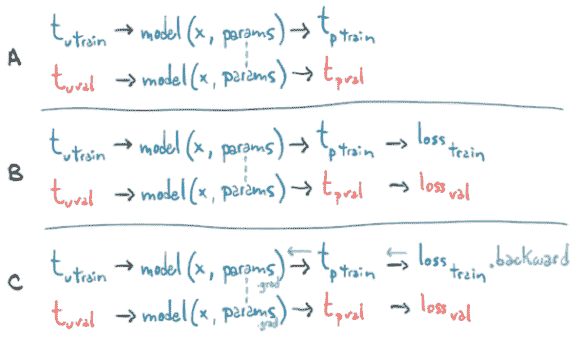 A
t_u train → model (x, params) → t_p train
t_u val → model (x, params) → t_p val
B
t_u train → model (x, params) → t_p train → loss train
t_u val → model (x, params) → t_p val → loss val
C
t_u train → model (x, params.grad) → t_p train → loss train.backward
t_u val → model (x, params.grad) → t_p val → loss val